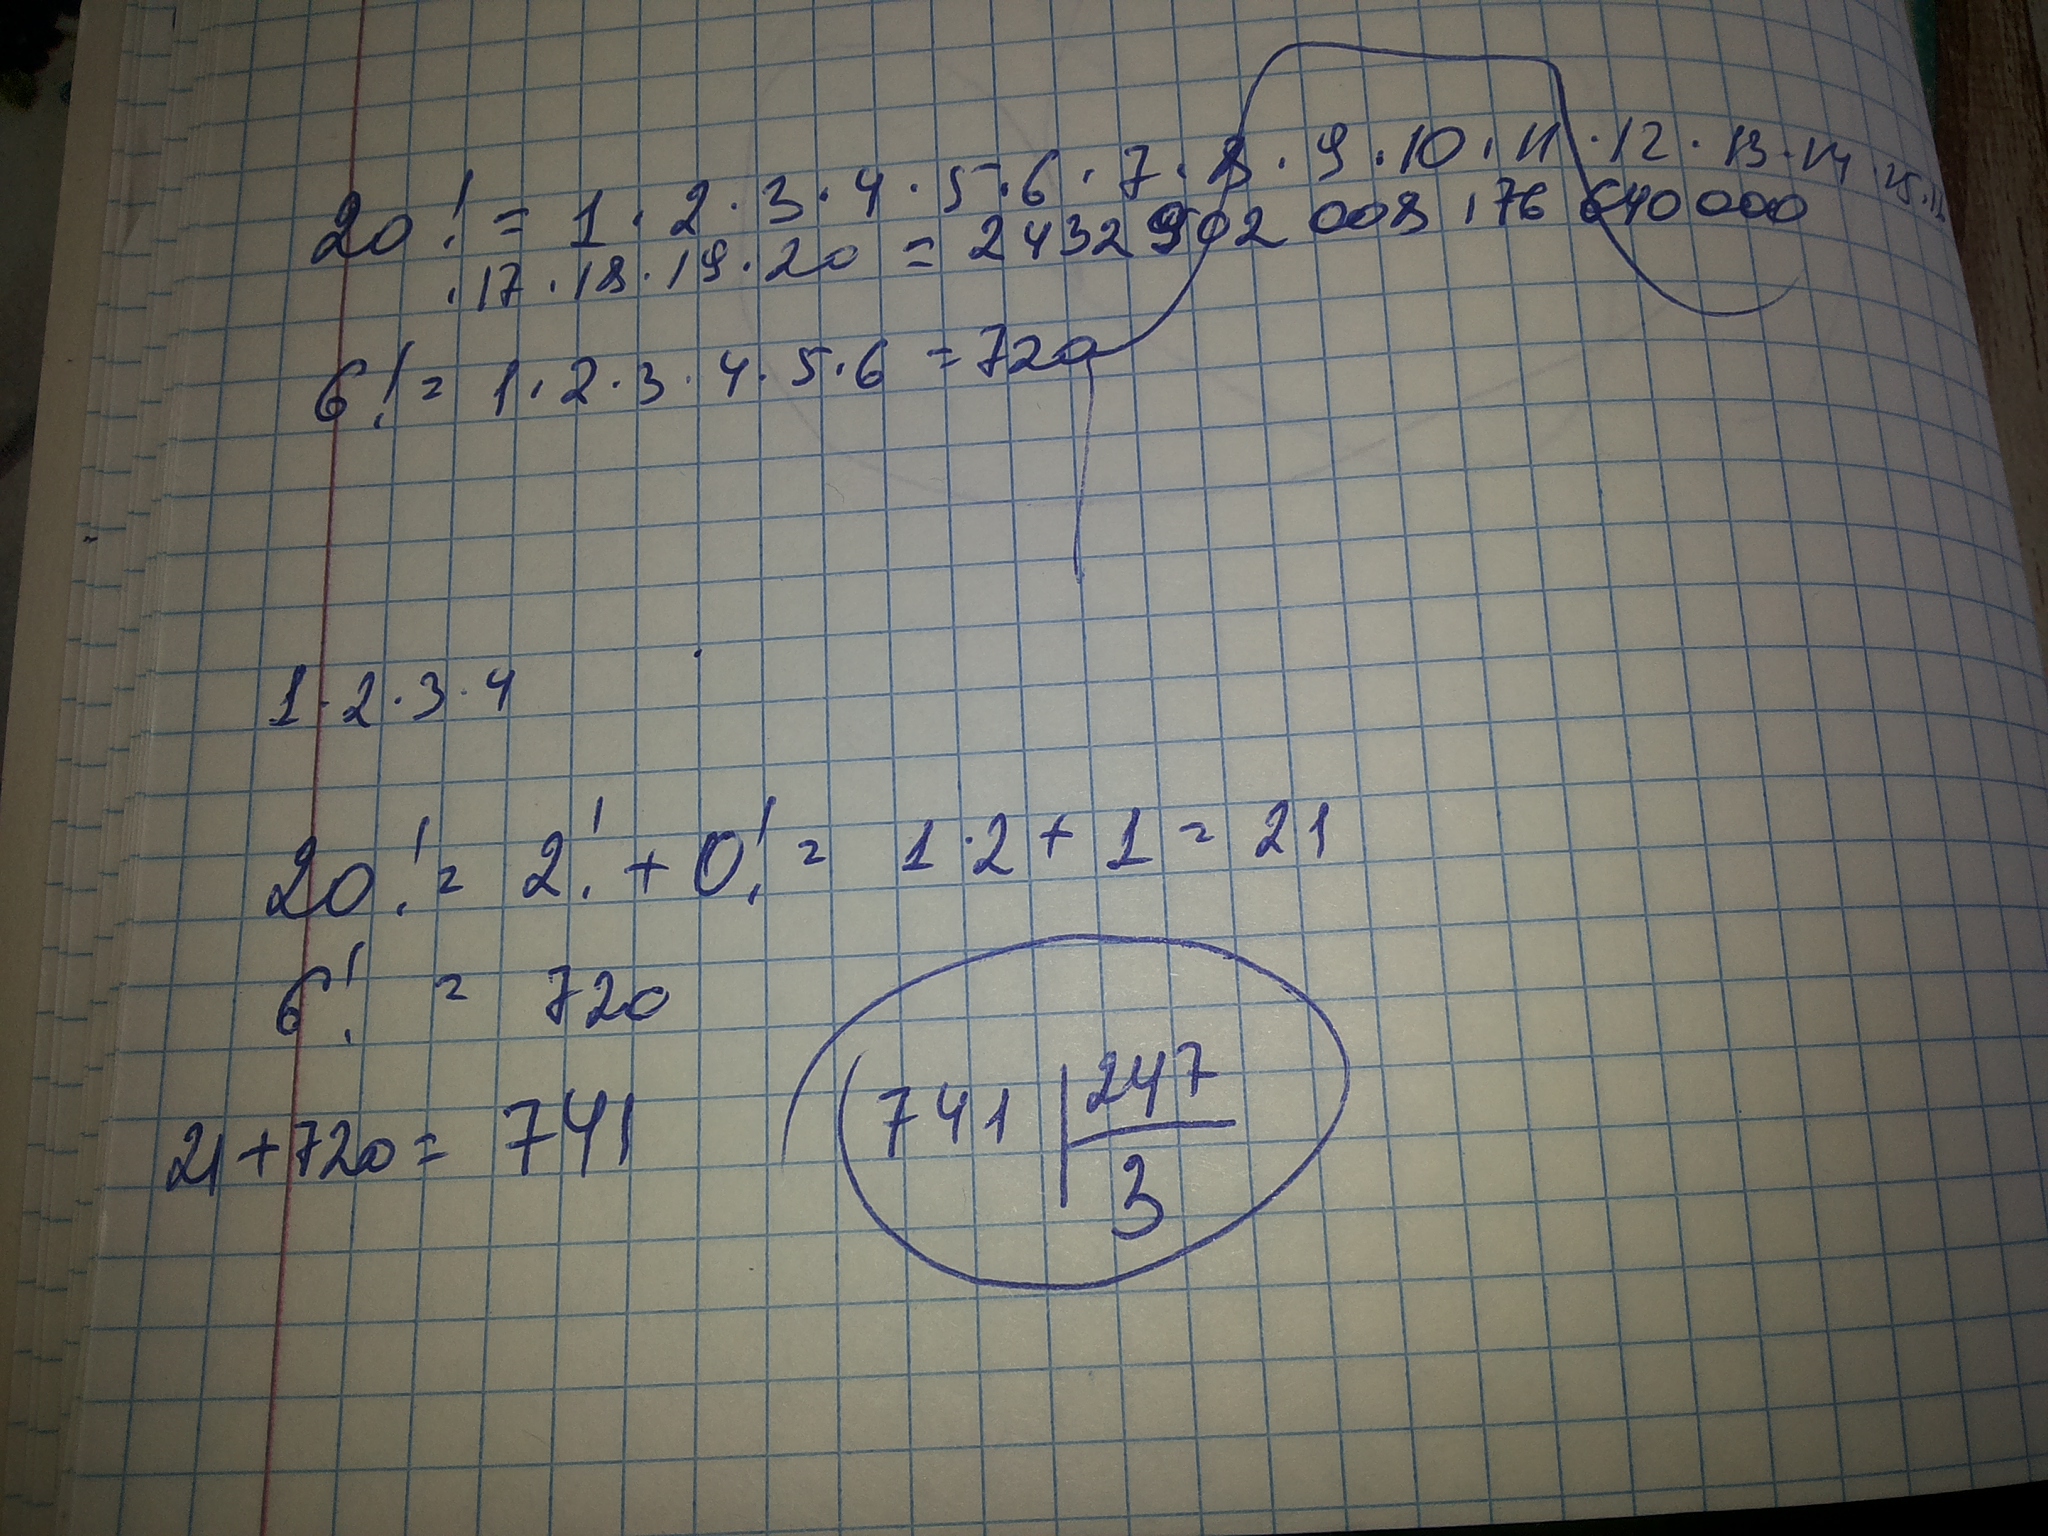 20! = 1 · 2 · 3 · 4 · 5 · 6 · 7 · 8 · 9 · 10 · 11 · 12 · 13 · 14 · 15 · 16
· 17 · 18 · 19 · 20 = 2432 902 008 176 640 000
6! = 1 · 2 · 3 · 4 · 5 · 6 = 720
1 · 2 · 3 · 4
20! = 2! + 0! = 1 · 2 + 1 = 21
6! = 720
21 + 720 = 741
741 | 247
3